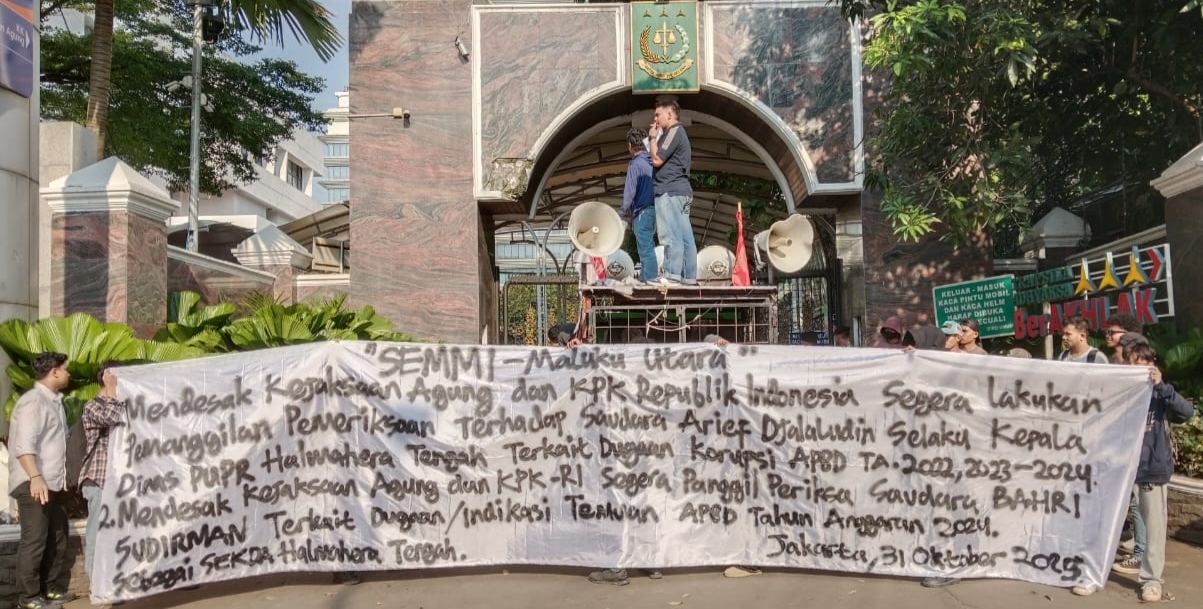 "SEMMI - Maluku Utara"
Mendesak Kejaksaan Agung dan KPK Republik Indonesia Segera Lakukan
Penanggilan Pemeriksaan Terhadap Saudara Arief Djalaludin Selaku Kepala
Dinas PUPR Halmahera Tengah Terkait Dugaan Korupsi APBD TA. 2022, 2023-2024.
2. Mendesak Kejaksaan Agung dan KPK-RI Segera Panggil Periksa Saudara BAHRI
SUDIRMAN Terkait Dugaan/Indikasi Temuan APBD Tahun Anggaran 2024.
Sebagai SEKDA Halmahera Tengah.
Jakarta, 31 Oktober 2025.
KELUAR - MASUK
KACA PINTU MOBIL
DAN KACA HELM
HARAP DIBUKA
BerAKHLAK